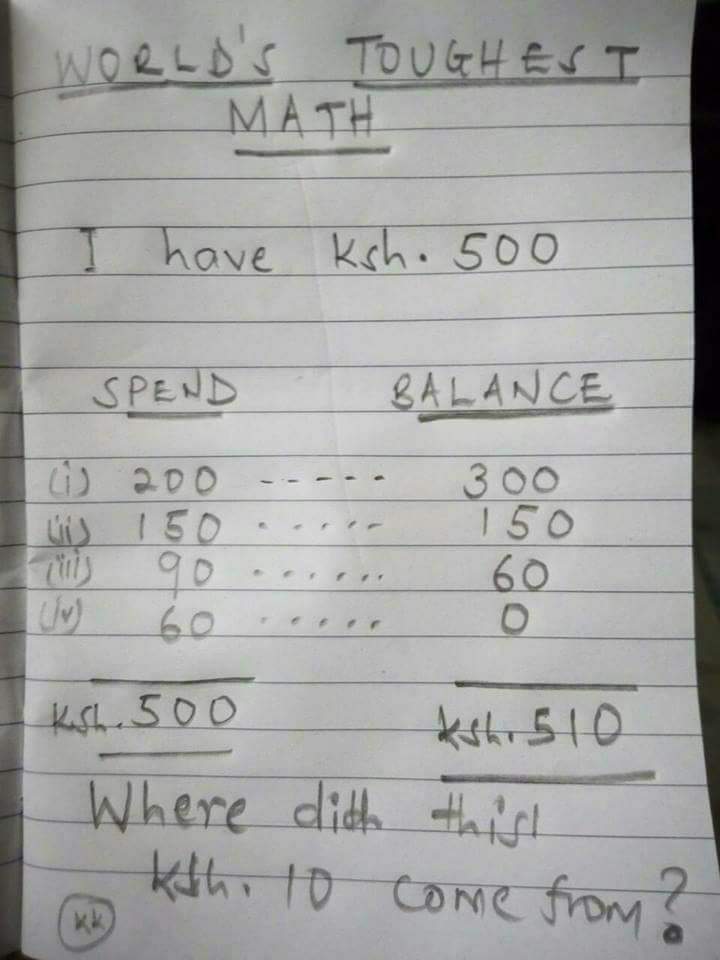 WORLD'S TOUGHEST
MATH
I have Ksh. 500
SPEND BALANCE
(i) 200 ------ 300
(ii) 150 ...... 150
(iii) 90 ...... 60
(iv) 60 ...... 0
Ksh. 500 Ksh. 510
Where did this
Ksh. 10 come from?
KK